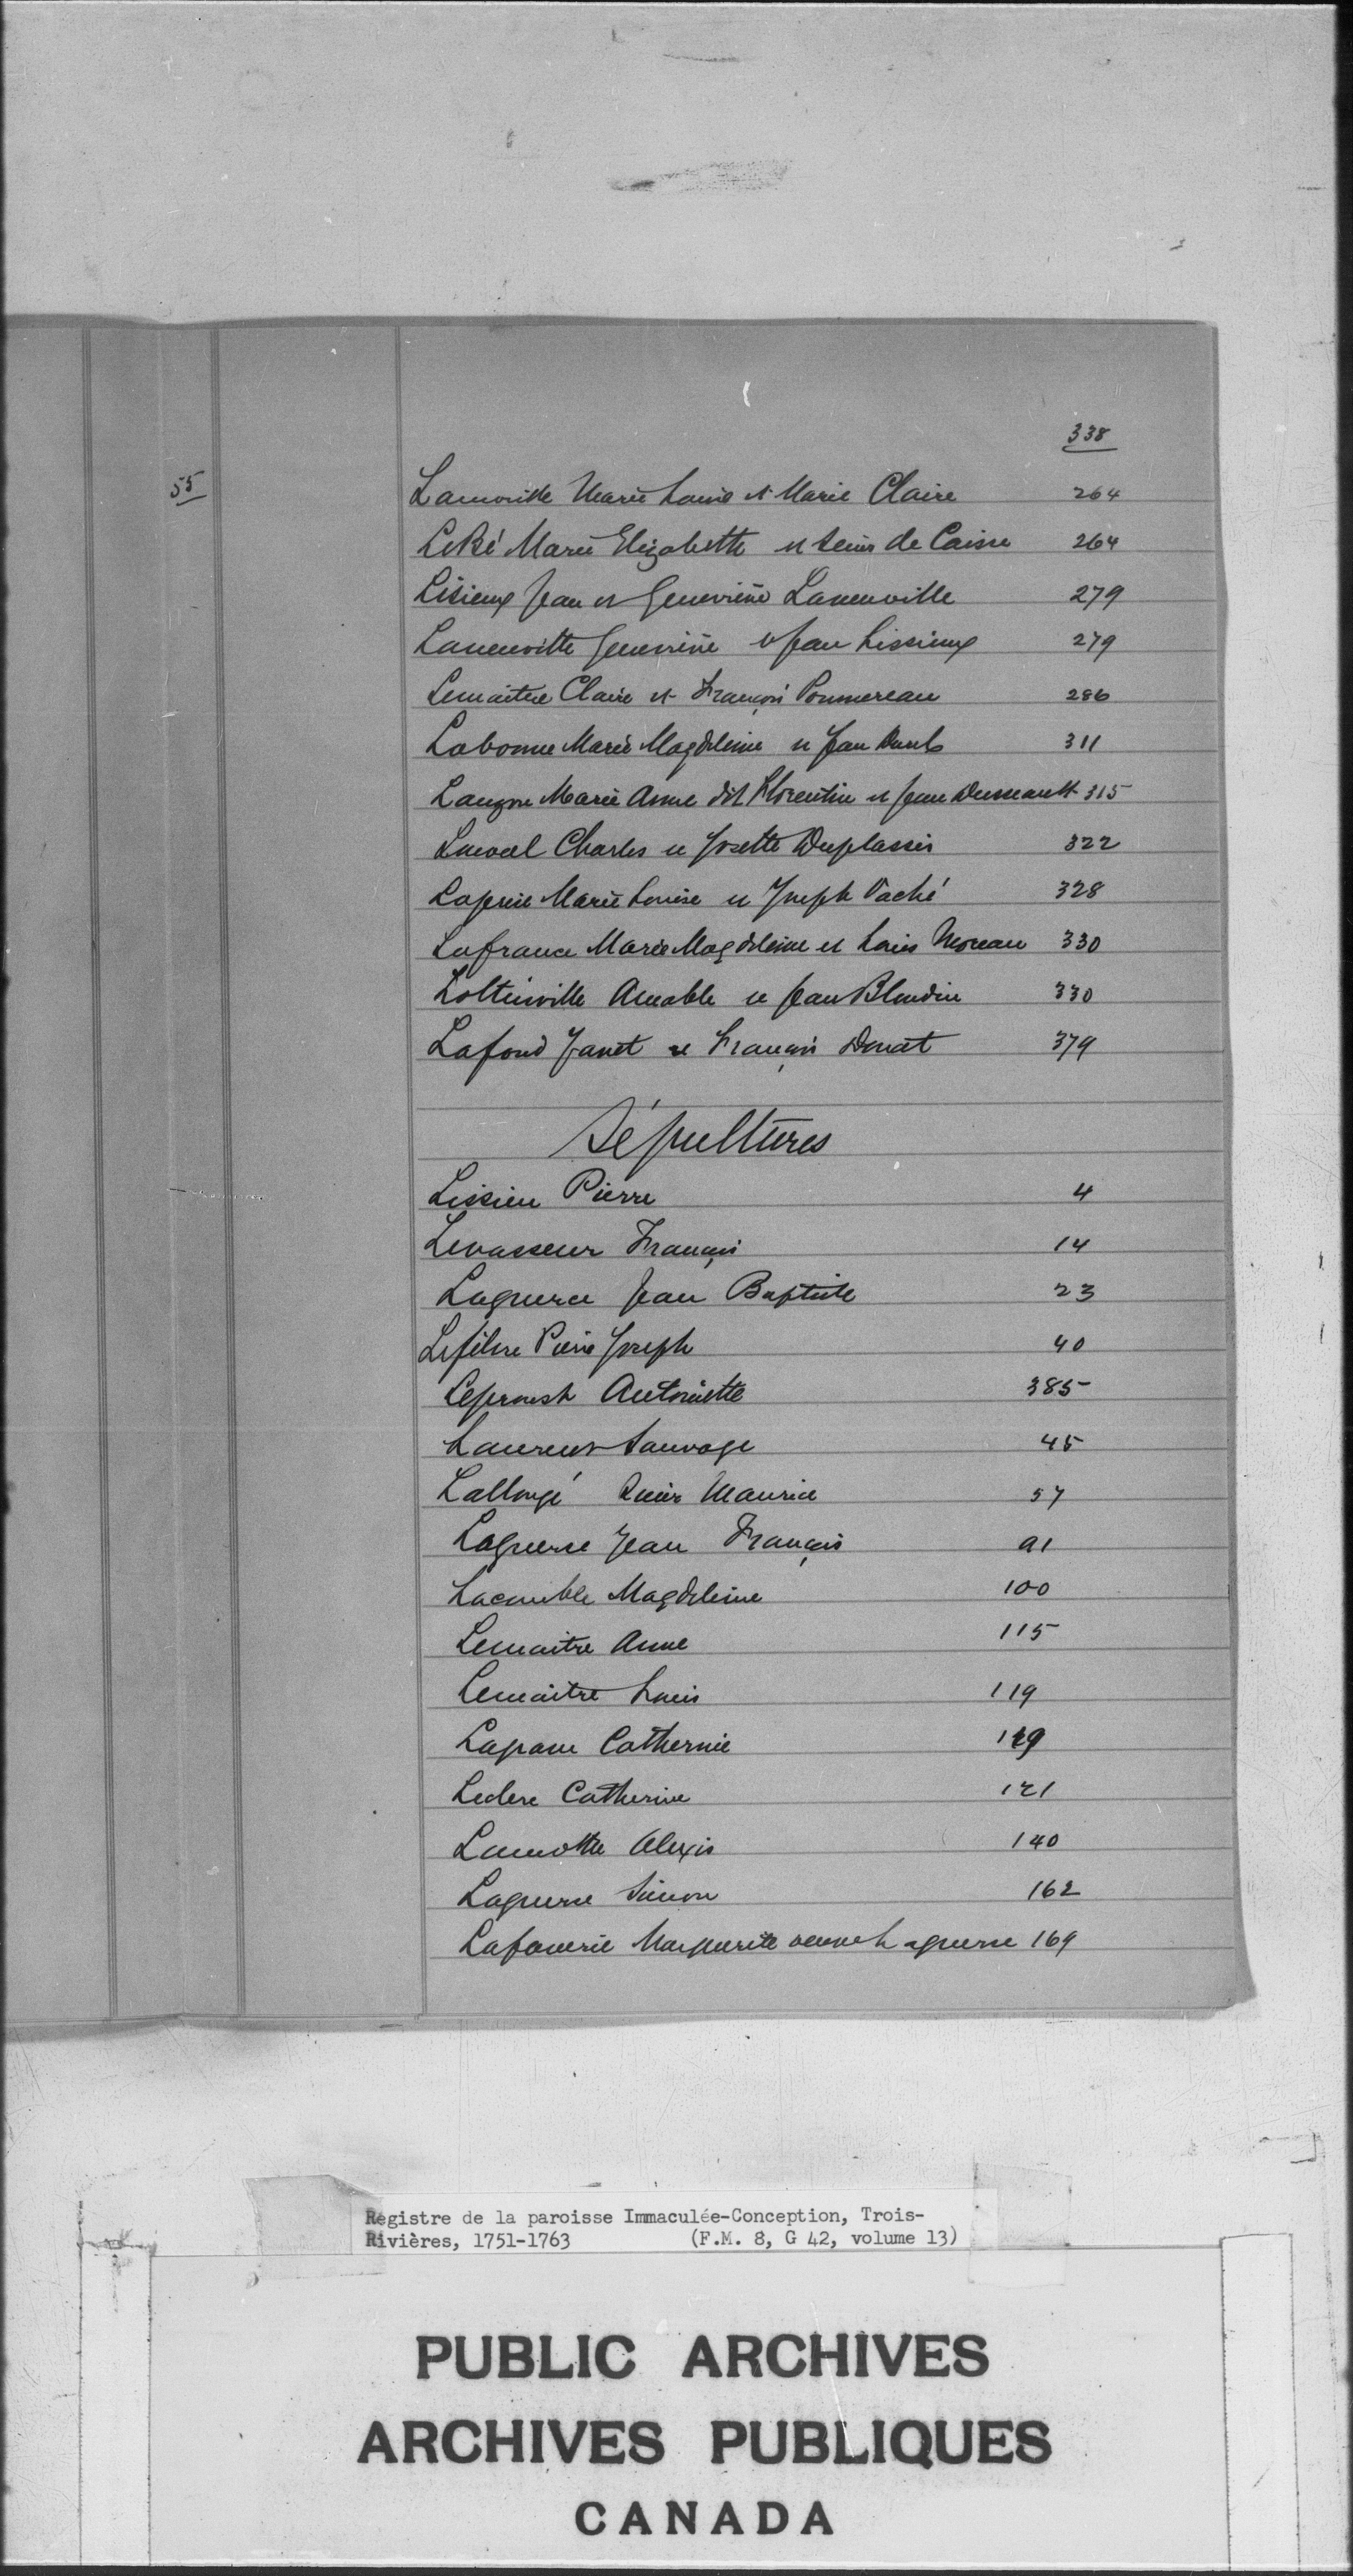 338
55
Marie Louise et Marie Claire 264
LeBé Marie Elizabette et Sieur de Caisne 264
Lisieux Jean et Geneviève Laneuville 279
Laneuville Geneviève et Jean Lissieux 279
Lemaitre Claire et François Pommereau 286
Labonne Marie Magdeleine et Jean 311
Lauzon Marie Anne dit Florentin et Jean Dusseault 315
Charles et Josette Duplassis 322
Marie Louise et Joseph Vaché 328
Lafrance Marie Magdeleine et Louis Moreau 330
Lottinville Amable et Jean Blondin 330
Lafond et François Donat 379
Sépultures
Lissieu Pierre 4
Levasseur François 14
Laguerce Jean Baptiste 23
Lefebre Pierre Joseph 40
Leproust Antoinette 385
Laurent Sauvage 45
Lallongé Maurice 57
Laguerse Jean François 91
Magdeleine 100
Lemaitre Anne 115
Lemaitre Louis 119
Catherine 119
Leclerc Catherine 121
Lamothe Alexis 140
Laguerse Simon 162
Marguerite veuve Laguerse 169
Registre de la paroisse Immaculée-Conception, Trois-
Rivières, 1751-1763 (F.M. 8, G 42, volume 13)
PUBLIC ARCHIVES
ARCHIVES PUBLIQUES
CANADA